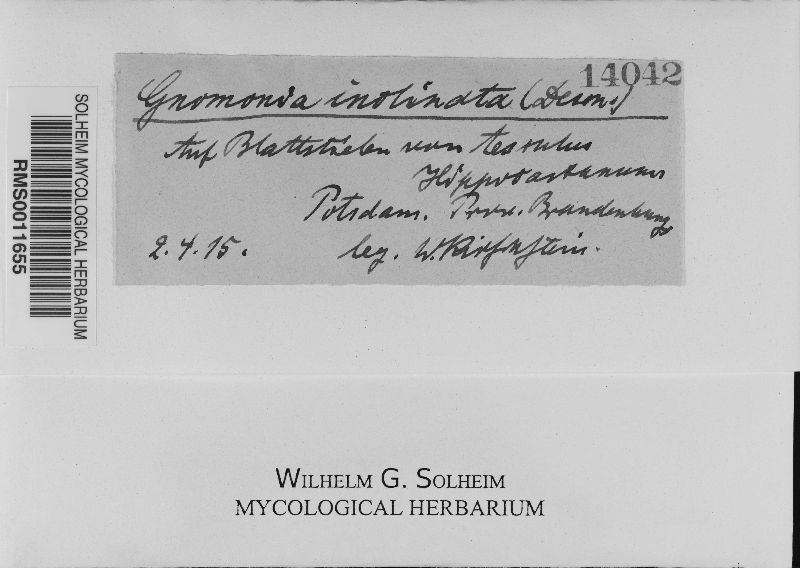 14042
Gnomonia inclinata (Desm.)
Auf Blattstielen von Aesculus
Hippocastanum
Potsdam. Prov. Brandenburg
2.4.15. leg. W. Kirschstein.
SOLHEIM MYCOLOGICAL HERBARIUM
RMS0011655
WILHELM G. SOLHEIM
MYCOLOGICAL HERBARIUM